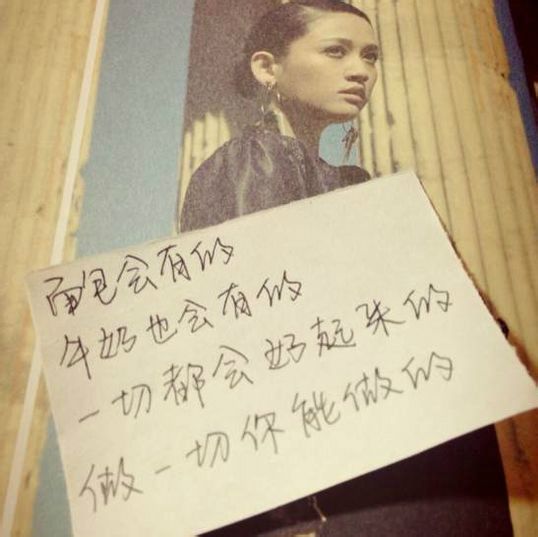 面包会有的
牛奶也会有的
一切都会好起来的
做一切你能做的